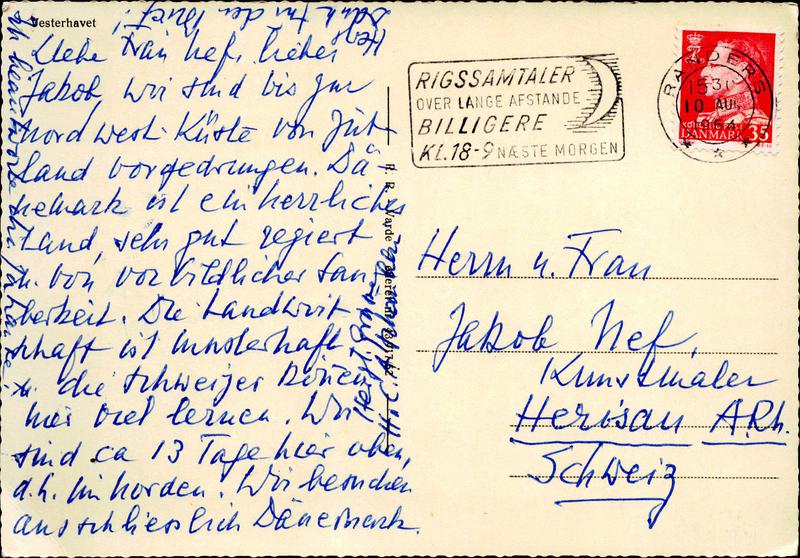 Vesterhavet
Liebe Frau Nef, lieber
Jakob, wir sind bis zur
nordwest-Küste von Jüt-
land vorgedrungen. Dä-
nemark ist ein herrliches
Land, sehr gut regiert
u. von vorbildlicher Sau-
berkeit. Die Landwirt-
schaft ist musterhaft.
die Schweizer Bauern
hier viel lernen. Wir
sind ca 13 Tage hier oben,
d.h. im Norden. Wir besuchen
ausschliesslich Dänemark.
Herzl. Grüsse
Dank für den Brief!
Ich beantworte ihn zu Hause!
RIGSSAMTALER
OVER LANGE AFSTANDE
BILLIGERE
KL.18-9 NÆSTE MORGEN
RANDERS
1530
10 AUG.
1964
DANMARK 35
Herrn u. Frau
Jakob Nef,
Kunstmaler
Herisau A.Rh.
Schweiz